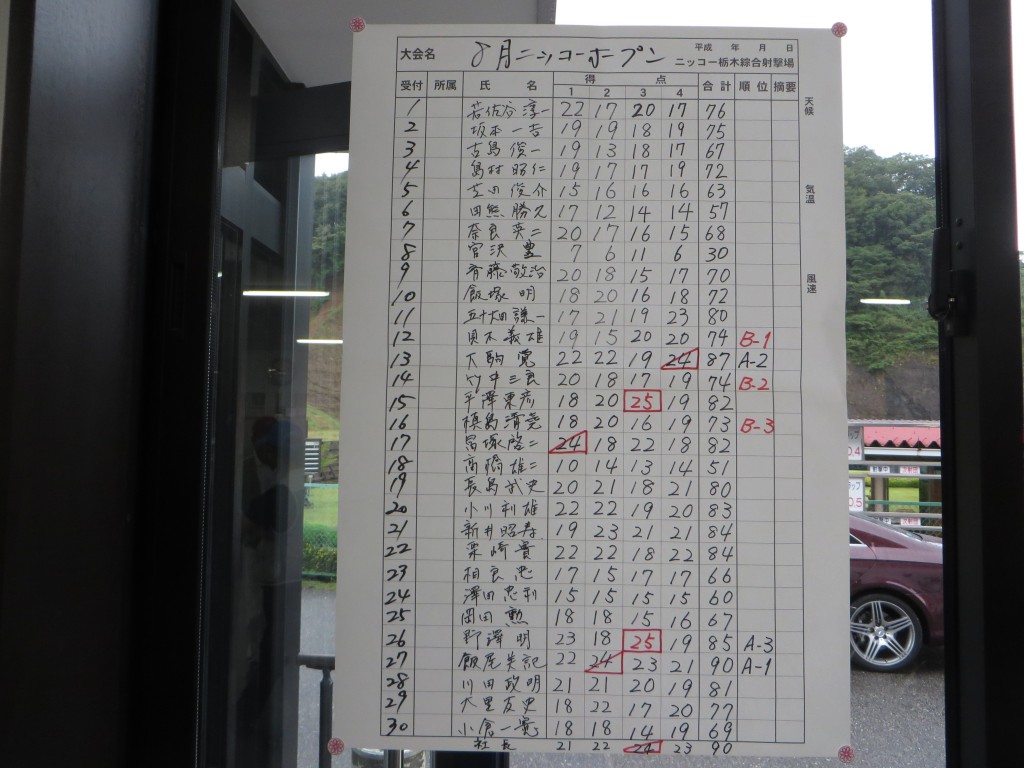 大会名 8月ニッコーオープン 平成 年 月 日
ニッコー栃木綜合射撃場
受付 所属 氏 名 得 点 合計 順位 摘要
1 2 3 4
天候
気温
風速
1 若佐谷 淳一 22 17 20 17 76
2 坂本 一吉 19 19 18 19 75
3 古島 俊一 19 13 18 17 67
4 島村 昭仁 19 17 17 19 72
5 芝田 俊介 15 16 16 16 63
6 田熊 勝久 17 12 14 14 57
7 奈良 英二 20 17 16 15 68
8 宮沢 豊 7 6 11 6 30
9 斉藤 敬治 20 18 15 17 70
10 飯塚 明 18 20 16 18 72
11 五十畑 謙一 17 21 19 23 80
12 貝木 義雄 19 15 20 20 74 B-1
13 大駒 寛 22 22 19 24 87 A-2
14 竹中 三良 20 18 17 19 74 B-2
15 平澤 東彦 18 20 25 19 82
16 槙島 清堯 18 20 16 19 73 B-3
17 冨塚 啓二 24 18 22 18 82
18 高橋 雄二 10 14 13 14 51
19 長島 武史 20 21 18 21 80
20 小川 利雄 22 22 19 20 83
21 新井 昭寿 19 23 21 21 84
22 栗崎 實 22 22 18 22 84
23 相良 忠 17 15 17 17 66
24 澤田 忠利 15 15 15 15 60
25 岡田 勲 18 18 15 16 67
26 野澤 明 23 18 25 19 85 A-3
27 飯尾 美記 22 24 23 21 90 A-1
28 川田 政明 21 21 20 19 81
29 大里 友史 18 22 17 20 77
30 小倉 一寛 18 18 14 19 69
社長 21 22 24 23 90